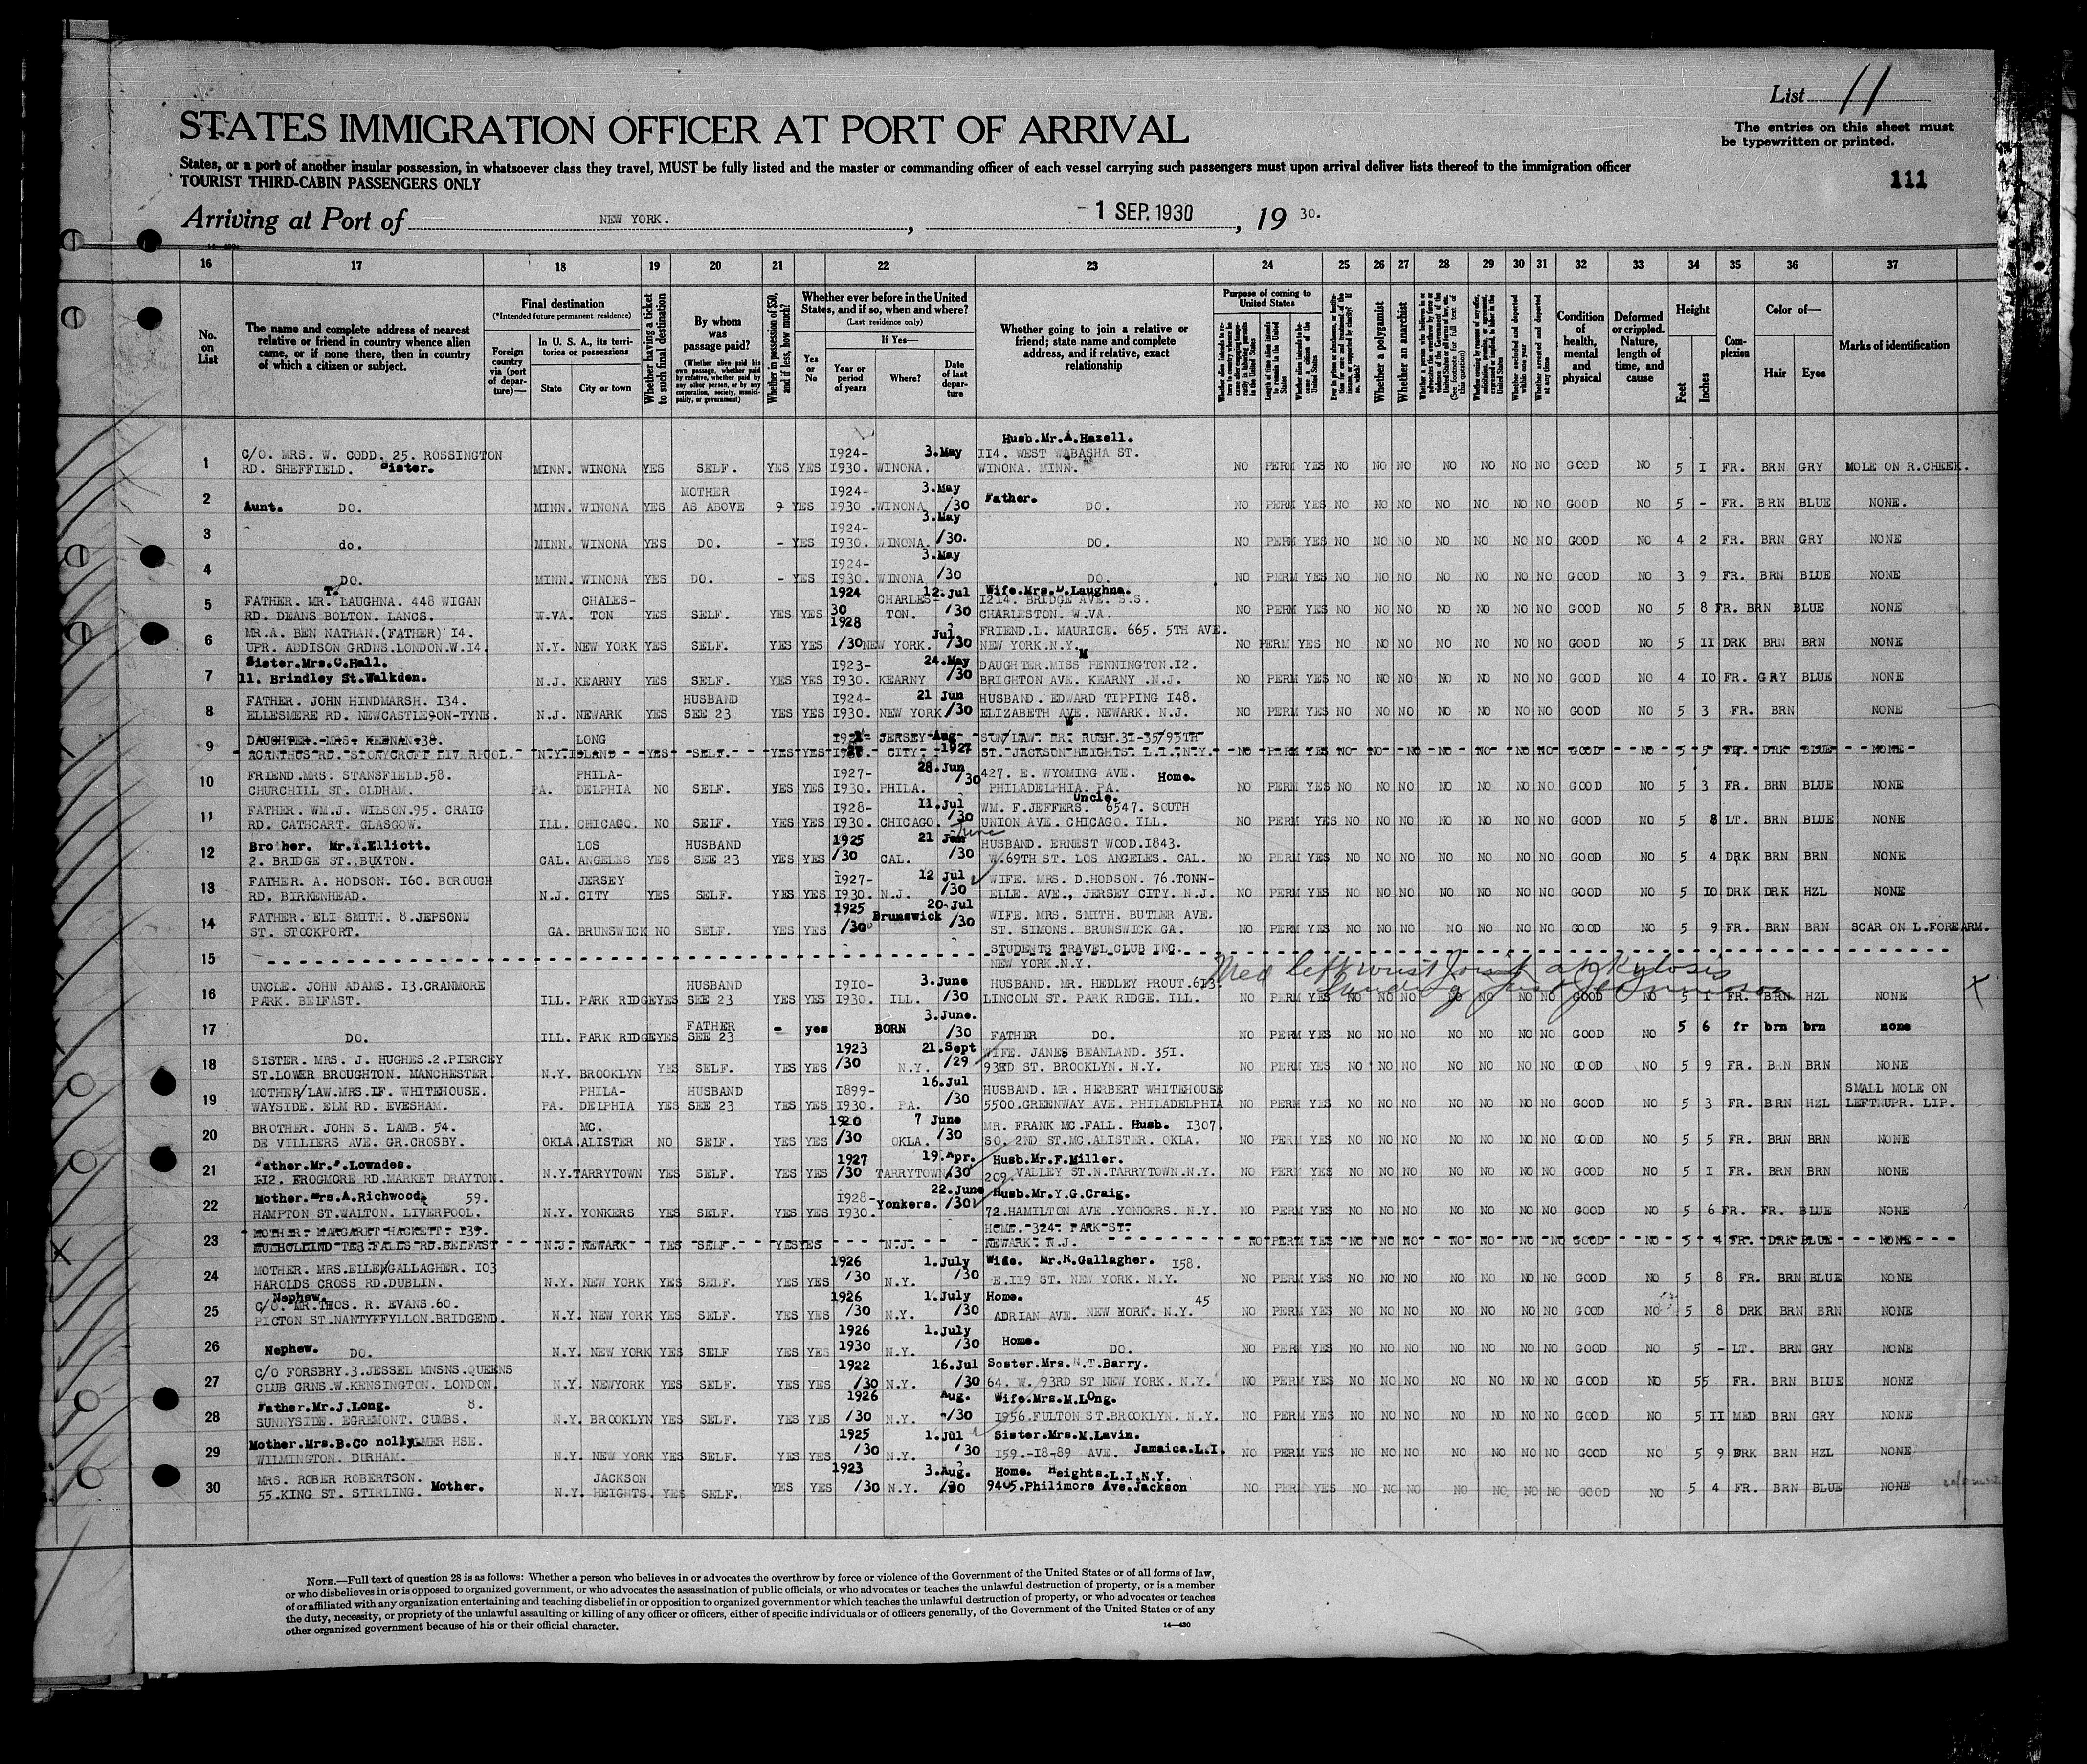 List 11
STATES IMMIGRATION OFFICER AT PORT OF ARRIVAL
The entries on this sheet must
be typewritten or printed.
States, or a port of another insular possession, in whatsoever class they travel, MUST be fully listed and the master or commanding officer of each vessel carrying such passengers must upon arrival deliver lists thereof to the immigration officer
TOURIST THIRD-CABIN PASSENGERS ONLY
111
Arriving at Port of NEW YORK. , - 1 SEP. 1930 , 19 30.
16 17 18 19 20 21 22 23 24 25 26 27 28 29 30 31 32 33 34 35 36 37
No. on List
The name and complete address of nearest relative or friend in country whence alien came, or if none there, then in country of which a citizen or subject.
Final destination
(*Intended future permanent residence)
Foreign country via (port of departure)—
In U. S. A., its territories or possessions
State
City or town
Whether having a ticket to such final destination
By whom was passage paid?
(Whether alien paid his own passage, whether paid by relative, whether paid by any other person, or by any corporation, society, municipality, or government)
Whether in possession of $50, and if less, how much?
Whether ever before in the United States, and if so, when and where?
(Last residence only)
Yes or No
If Yes—
Year or period of years
Where?
Date of last departure
Whether going to join a relative or friend; state name and complete address, and if relative, exact relationship
Purpose of coming to United States
Length of time alien intends to remain in the United States
Whether alien intends to become a citizen of the United States
Whether a polygamist
Whether an anarchist
Condition of health, mental and physical
Deformed or crippled. Nature, length of time, and cause
Height
Feet
Inches
Complexion
Color of—
Hair
Eyes
Marks of identification
Husb.Mr.A.Hazell.
C/O. MRS. W. CODD. 25. ROSSINGTON 1924- 3.May 114. WEST WABASHA ST.
1 RD. SHEFFIELD. Sister. MINN. WINONA YES SELF. YES YES 1930. WINONA. WINONA. MINN. NO PERM YES NO NO NO NO NO NO NO GOOD NO 5 1 FR. BRN GRY MOLE ON R.CHEEK.
MOTHER 1924- 3.May Father.
2 Aunt. DO. MINN. WINONA YES AS ABOVE 9 YES 1930 .WINONA /30 DO. NO PERM YES NO NO NO NO NO NO NO GOOD NO 5 - FR. BRN BLUE NONE.
1924- 3.May
3 do. MINN. WINONA YES DO. - YES 1930. WINONA. /30. DO. NO PERM YES NO NO NO NO NO NO NO GOOD NO 4 2 FR. BRN GRY NONE
1924- 3.May
4 DO. MINN. WINONA YES DO. - YES 1930. WINONA /30 DO. NO PERM YES NO NO NO NO NO NO NO GOOD NO 3 9 FR. BRN BLUE NONE
T. 1924 12.Jul Wife.Mrs.D.Laughna.
FATHER. MR. LAUGHNA. 448 WIGAN CHALES- 30 CHARLES- 1214. BRIDGE AVE. S.S.
5 RD. DEANS BOLTON. LANCS. W.VA. TON YES SELF. YES YES TON. /30 CHARLESTON. W.VA. NO PERM YES NO NO NO NO NO NO NO GOOD NO 5 8 FR. BRN BLUE NONE
MR.A. BEN NATHAN.(FATHER) 14. 1928 Jul FRIEND.L. MAURICE. 665. 5TH AVE.
6 UPR. ADDISON GRDNS.LONDON.W.14. N.Y. NEW YORK YES SELF. YES YES /30 NEW YORK. /30 NEW YORK.N.Y. NO PERM YES NO NO NO NO NO NO NO GOOD NO 5 11 DRK BRN BRN NONE
Sister.Mrs.C.Hall. 1923- 24.May DAUGHTER.MISS M PENNINGTON.12.
7 11. Brindley St.Walkden. N.J. KEARNY YES SELF. YES YES 1930. KEARNY /30 BRIGHTON AVE. KEARNY .N.J. NO PERM YES NO NO NO NO NO NO NO GOOD NO 4 10 FR. GRY BLUE NONE
FATHER. JOHN HINDMARSH. 134. HUSBAND 1924- 21 Jun HUSBAND. EDWARD TIPPING 148.
8 ELLESMERE RD. NEWCASTLE-ON-TYNE. N.J. NEWARK YES SEE 23 YES YES 1930. NEW YORK /30 ELIZABETH AVE. NEWARK. N.J. NO PERM YES NO NO NO NO NO NO NO GOOD NO 5 3 FR. BRN NONE
DAUGHTER. MRS. KEENAN.38. LONG JERSEY Aug SON/LAW. DR. RUSH.31-35/95TH
9 ACANTHUS RD. STONYCROFT LIVERPOOL. N.Y. ISLAND YES SELF. YES YES CITY. 1927 ST. JACKSON HEIGHTS. L.I.,N.Y. NO PERM YES NO NO NO NO NO NO NO GOOD NO 5 5 FR. DRK BLUE NONE
FRIEND.MRS. STANSFIELD.58. PHILA- 1927- 28.Jun 427. E. WYOMING AVE. Home.
10 CHURCHILL ST. OLDHAM. PA. DELPHIA NO SELF. YES YES 1930. PHILA. /30 PHILADELPHIA. PA. NO PERM YES NO NO NO NO NO NO NO GOOD NO 5 3 FR. BRN BLUE NONE
FATHER. WM.J. WILSON.95. CRAIG 1928- 11.Jul Uncle. WM. F.JEFFERS. 6547. SOUTH
11 RD. CATHCART. GLASGOW. ILL. CHICAGO. NO SELF. YES YES 1930. CHICAGO. /30 UNION AVE. CHICAGO. ILL. NO PERM YES NO NO NO NO NO NO NO GOOD NO 5 8 LT. BRN BLUE NONE
Brother. Mr.T.Elliott. LOS HUSBAND 1925 21 Jan June HUSBAND. ERNEST WOOD.1843.
12 2. BRIDGE ST. BUXTON. CAL. ANGELES YES SEE 23 YES YES /30 CAL. /30 W.69TH ST. LOS ANGELES. CAL. NO PERM YES NO NO NO NO NO NO NO GOOD NO 5 4 DRK BRN BRN NONE
FATHER. A. HODSON. 160. BOROUGH JERSEY 1927- 12 Jul WIFE. MRS. D.HODSON. 76.TONN-
13 RD. BIRKENHEAD. N.J. CITY YES SELF. YES YES 1930. N.J. /30 ELLE. AVE., JERSEY CITY. N.J. NO PERM YES NO NO NO NO NO NO NO GOOD NO 5 10 DRK DRK HZL NONE
FATHER. ELI SMITH. 8.JEPSON 1925 20-Jul WIFE. MRS. SMITH. BUTLER AVE.
14 ST. STOCKPORT. GA. BRUNSWICK NO SELF. YES YES /30 Brunswick /30 ST. SIMONS. BRUNSWICK GA. NO PERM YES NO NO NO NO NO NO NO GOOD NO 5 9 FR. BRN BRN SCAR ON L.FOREARM.
STUDENTS TRAVEL CLUB INC.
15 NEW YORK.N.Y.
Med left wrist joint ankylosis
UNCLE. JOHN ADAMS. 13.CRANMORE HUSBAND 1910- 3.June HUSBAND. MR. HEDLEY PROUT.613.
16 PARK. BELFAST. ILL. PARK RIDGE YES SEE 23 YES YES 1930. ILL. /30 LINCOLN ST. PARK RIDGE. ILL. NO PERM YES NO NO NO NO NO NO NO GOOD NO 5 1 FR. BRN HZL NONE
FATHER 3.June.
17 DO. ILL. PARK RIDGE YES SEE 23 - yes BORN /30 FATHER DO. NO PERM YES NO NO NO NO NO NO NO GOOD NO 5 6 fr brn brn none
SISTER. MRS. J. HUGHES.2.PIERCEY 1923 21.Sept WIFE. JANES BEANLAND. 351.
18 ST.LOWER BROUGHTON. MANCHESTER. N.Y. BROOKLYN YES SELF. YES YES /30 N.Y. /29 93RD ST. BROOKLYN. N.Y. NO PERM YES NO NO NO NO NO NO NO GOOD NO 5 9 FR. BRN BRN NONE
MOTHER/LAW.MRS.IF. WHITEHOUSE. PHILA- HUSBAND 1899- 16.Jul HUSBAND. MR HERBERT WHITEHOUSE SMALL MOLE ON
19 WAYSIDE. ELM RD. EVESHAM. PA. DELPHIA YES SEE 23 YES YES 1930. PA. /30 5500.GREENWAY AVE. PHILADELPHIA NO PERM YES NO NO NO NO NO NO NO GOOD NO 5 3 FR. BRN HZL LEFT.UPR. LIP.
BROTHER. JOHN S. LAMB. 54. MC. 1920 7 June MR. FRANK MC.FALL. Husb. 1307.
20 DE VILLIERS AVE. GR.CROSBY. OKLA. ALISTER NO SELF. YES YES /30 OKLA. /30 SO. 2ND ST.MC.ALISTER. OKLA. NO PERM YES NO NO NO NO NO NO NO GOOD NO 5 5 FR. BRN BRN NONE
Father.Mr. .Lowndes. 1927 19.Apr. Husb.Mr.F.Miller.
21 112. FROGMORE RD.MARKET DRAYTON. N.Y. TARRYTOWN YES SELF. YES YES /30 TARRYTOWN /30 209.VALLEY ST.N.TARRYTOWN.N.Y. NO PERM YES NO NO NO NO NO NO NO GOOD NO 5 1 FR. BRN BRN NONE
Mother.Mrs.A.Richwood. 59. 1928- 22.June Husb.Mr.Y.G.Craig.
22 HAMPTON ST.WALTON. LIVERPOOL. N.Y. YONKERS YES SELF. YES YES 1930. Yonkers. /30 72.HAMILTON AVE .YONKERS. N.Y. NO PERM YES NO NO NO NO NO NO NO GOOD NO 5 6 FR. FR. BLUE NONE
MOTHER. MARGARET HACKETT. 139. HOME. 324. PARK ST.
23 MULHOLLAND TER FALLS RD.BELFAST N.J. NEWARK YES SELF. YES YES N.J. NEWARK. N.J. NO PERM YES NO NO NO NO NO NO NO GOOD NO 5 4 FR. DRK BLUE NONE
MOTHER. MRS.ELLEN GALLAGHER. 103 1926 1.July Wife. Mr.R.Gallagher 158.
24 HAROLDS CROSS RD.DUBLIN. N.Y. NEW YORK YES SELF. YES YES /30 N.Y. /30 E.119 ST. NEW YORK. N.Y. NO PERM YES NO NO NO NO NO NO NO GOOD NO 5 8 FR. BRN BLUE NONE
Nephew. C/O. MR.THOS. R. EVANS.60. 1926 1.July Home. 45
25 PICTON ST.NANTYFFYLLON.BRIDGEND. N.Y. NEW YORK YES SELF. YES YES /30 N.Y. /30 ADRIAN AVE. NEW YORK. N.Y. NO PERM YES NO NO NO NO NO NO NO GOOD NO 5 8 DRK BRN BRN NONE
1926 1.July Home.
26 Nephew. DO. N.Y. NEW YORK YES SELF YES YES 1930 N.Y. /30 DO. NO PERM YES NO NO NO NO NO NO NO GOOD NO 5 - LT. BRN GRY NONE
C/O FORSBRY.3.JESSEL MNSNS.QUEENS 1922 16.Jul Soster.Mrs. .T.Barry.
27 CLUB GRNS.W.KENSINGTON. LONDON. N.Y. NEWYORK YES SELF. YES YES /30 N.Y. /30 64. W. 93RD ST NEW YORK. N.Y. NO PERM YES NO NO NO NO NO NO NO GOOD NO 55 FR. BRN BLUE NONE
Father.Mr.J.Long. 8. 1926 Aug. Wife.Mrs.M.LOng.
28 SUNNYSIDE. EGREMONT. CUMBS. N.Y. BROOKLYN YES SELF. YES YES /30 N.Y. -/30 1956.FULTON ST.BROOKLYN. N.Y. NO PERM YES NO NO NO NO NO NO NO GOOD NO 5 11 MED BRN GRY NONE
Mother.Mrs.B.Co nolly. HSE. 1925 1.Jul Sister.Mrs.M.Lavin.
29 WILMINGTON. DURHAM. N.Y. NEW YORK YES SELF. YES YES /30 N.Y. /30 159.-18-89 AVE. Jamaica.L.I. NO PERM YES NO NO NO NO NO NO NO GOOD NO 5 9 DRK BRN HZL NONE
MRS. ROBER ROBERTSON. JACKSON 1923 3.Aug. Home. Heights.L.I.N.Y.
30 55.KING ST. STIRLING. Mother. N.Y. HEIGHTS. YES SELF. YES YES /30 N.Y. /30 9405.Philimore Ave.Jackson NO PERM YES NO NO NO NO NO NO NO GOOD NO 5 4 FR. BRN BLUE NONE
NOTE.—Full text of question 28 is as follows: Whether a person who believes in or advocates the overthrow by force or violence of the Government of the United States or of all forms of law,
or who disbelieves in or is opposed to organized government, or who advocates the assassination of public officials, or who advocates or teaches the unlawful destruction of property, or is a member
of or affiliated with any organization entertaining and teaching disbelief in or opposition to organized government or which teaches the unlawful destruction of property, or who advocates or teaches
the duty, necessity, or propriety of the unlawful assaulting or killing of any officer or officers, either of specific individuals or of officers generally, of the Government of the United States or of any
other organized government because of his or their official character.
14—430